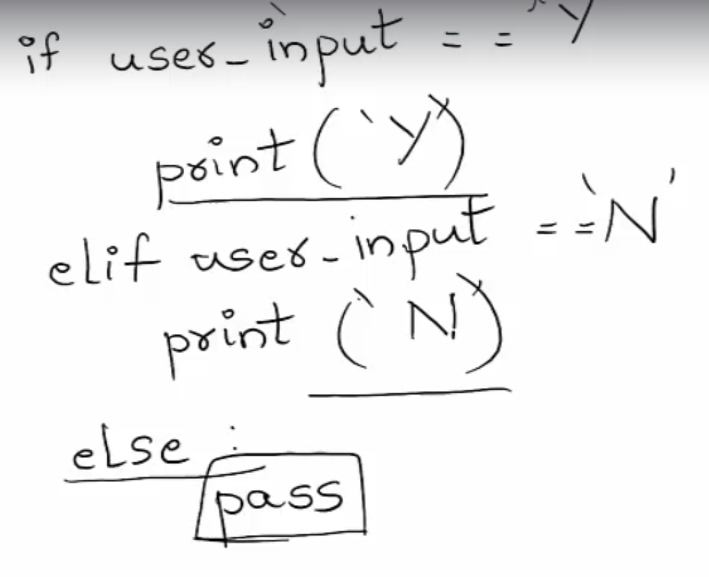 if user_input == 'Y
print ('Y')
elif user_input == 'N'
print ('N')
else :
pass